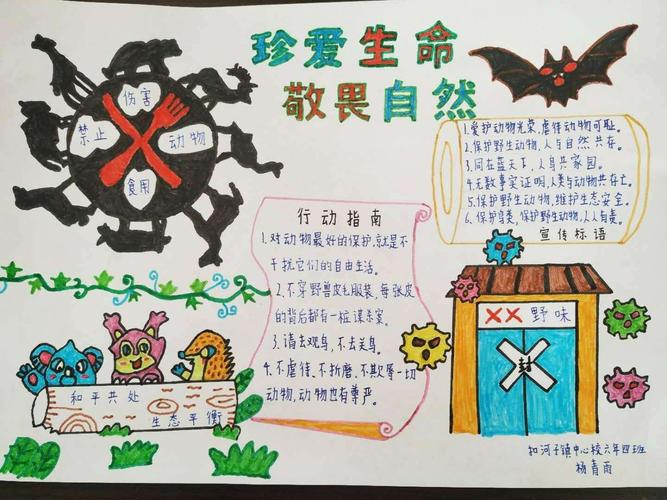 珍爱生命
敬畏自然
伤害
禁止
动物
食用
1.爱护动物光荣,虐待动物可耻。
2.保护野生动物,人与自然共存。
3.同在蓝天下,人鸟共家园。
4.无数事实证明,人类与动物共存亡。
5.保护野生动物,维护生态安全。
6.保护鸟类,保护野生动物,人人有责。
宣传标语
行动指南
1.对动物最好的保护,就是不
干扰它们的自由生活。
2.不穿野兽皮毛服装,每张皮
的背后都有一桩谋杀案。
3.请去观鸟,不去关鸟。
4.不虐待、不折磨、不欺辱一切
动物,动物也有尊严。
和平共处
生态平衡
XX野味
封
和河子镇中心校六年四班
杨青雨